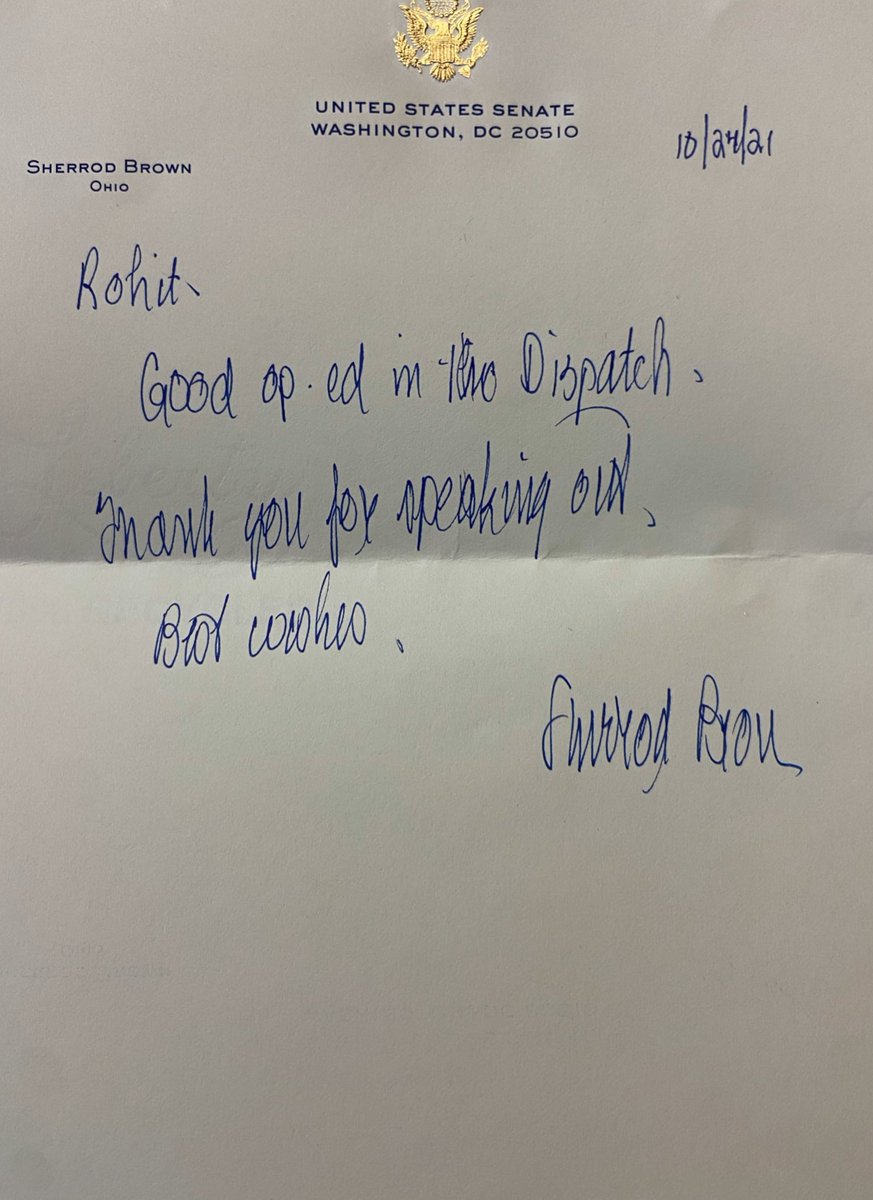 UNITED STATES SENATE
WASHINGTON, DC 20510
10/24/21
SHERROD BROWN
OHIO
Rohit,
Good op.ed in the Dispatch.
Thank you for speaking out.
Best wishes.
Sherrod Brown